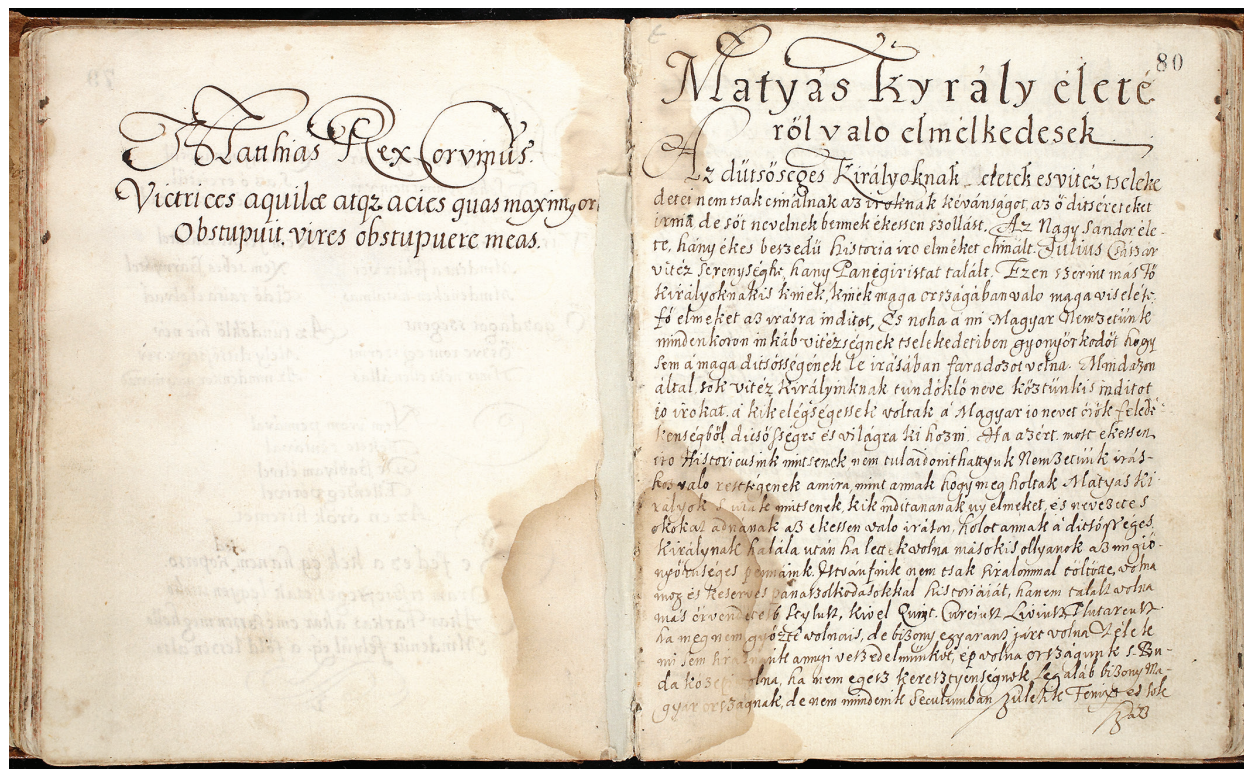 Matthias Rex Corvinus.
Victrices aquilæ atqz acies quas maximq ori
Obstupuit, vires obstupuere meas.
80
Matyás Kyrály életé
ről valo elmélkedesek
Az dütsőséges Királyoknak életek es vitéz tseleke
detei nem tsak cimálnak az iroknak kévánságot, az ő ditséreteket
irnia, de sőt nevelnek bennek ékessen szollást. Az Nagy Sándor éle-
te, hány ékes beszedű historia iro elméket chinált. Julius Császár
vitéz serénységhe, hany Panegiristat talált. Ezen szerint más Fő
Királyoknak is kinek, kinek maga országában valo maga viselése,
fő elmeket az irásra inditot, És noha a mi Magyar Nemzetünk
mindenkoron inkáb vitézségnek tselekedetiben gyonyörkodöt hogy
sem a maga ditsösségének le irásában faradozot volna. Mindazon
által sok vitéz Királyinknak tündöklő neve köztünk is inditot
io irokat, a kik elégségessek voltak a Magyar io nevet örök feledé
kenségből dicsősségre és világra ki hozni. Ha azért most ekessen
iro Historicusink nintsenek nem tulaidonithattyuk Nemzetünk irás-
hoz valo restségenek amira, mint annak hogy meg holtak Matyás ki
rályok s viták nintsenek, kik inditananak uy elmeket, és nevezetes
okokat adnanak az ekessen valo irásra, holot annak a ditsősséges
Királynak halála után ha lettek volna mások is ollyanok az mi gyö-
nyörüséges pennaink. Istvánfinik nem tsak siralommal töltötte volna
meg és keserves panaszolkodásokkal historiáját, hanem talált volna
más örvendetesb styust, kivel Quint. Curciust Liviust Plutarcust
ha meg nem győzte volnais, de bizony egyarant járt volna
mi sem annyi veszedelmünköt, ép volna országunk s Bu-
da közepi volna, ha nem egész keresztyenségnek Legaláb bizony Ma-
gyar országnak, de nem mindenik seculumban születik Fenix, és sok
száz